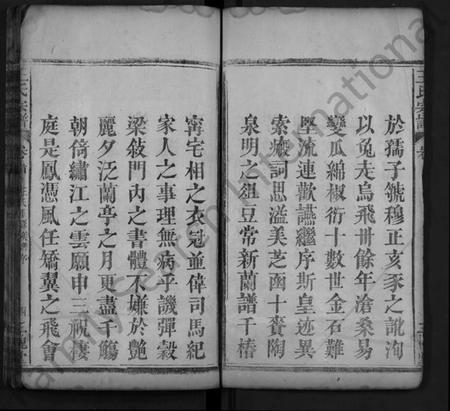 於孺子虢穆正亥豕之訛洵
以兔走烏飛卅餘年滄桑易
變瓜綿椒衍十數世金石難
堅流連歡讌繼序斯皇迹異
索瘢詞思溢美芝函十賚陶
泉明之俎豆常新蘭譜千椿
甯宅相之衣冠並偉司馬紀
家人之事理無病乎譏彈穀
梁敍門內之書體不嫌於艷
麗夕泛蘭亭之月更盡千觴
朝倚繡江之雲願申三祝棲
庭是鳳憑風任矯翼之飛會
王氏宗譜
卷首
四
FamilySearch International